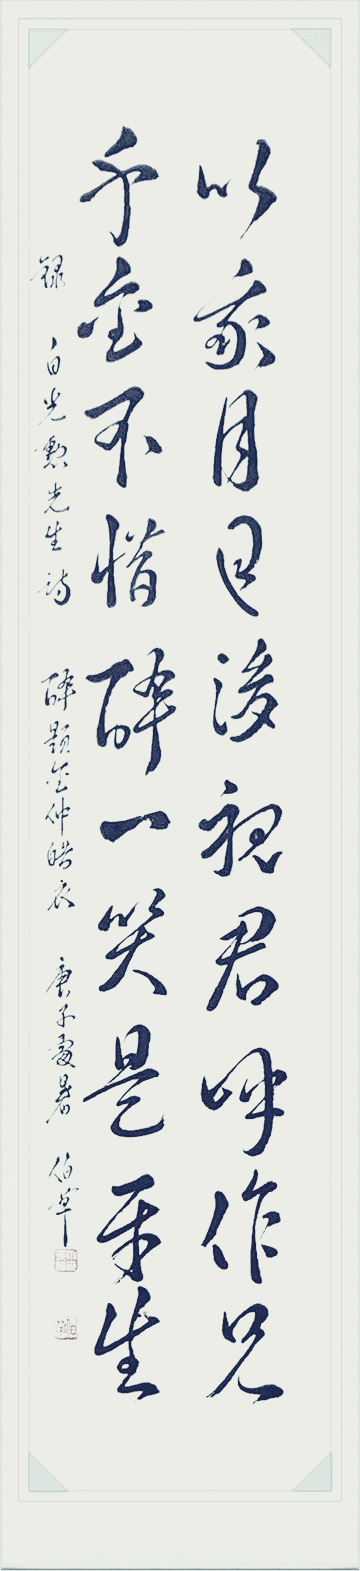 以我月日後視君呼作兄
千金不惜醉一笑是平生
録 白光勳先生詩 醉題金仲皓衣 庚子處暑 伯